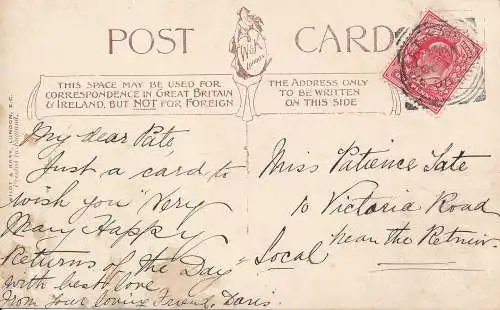 POST CARD
W&K
London
THIS SPACE MAY BE USED FOR
CORRESPONDENCE IN GREAT BRITAIN
& IRELAND, BUT NOT FOR FOREIGN
THE ADDRESS ONLY
TO BE WRITTEN
ON THIS SIDE
My dear Pate,
Just a card to
wish you Very
Many Happy
Returns of the Day
with best love
From Your loving Friend, Doris.
Miss Patience Tate
10 Victoria Road
near the
Local